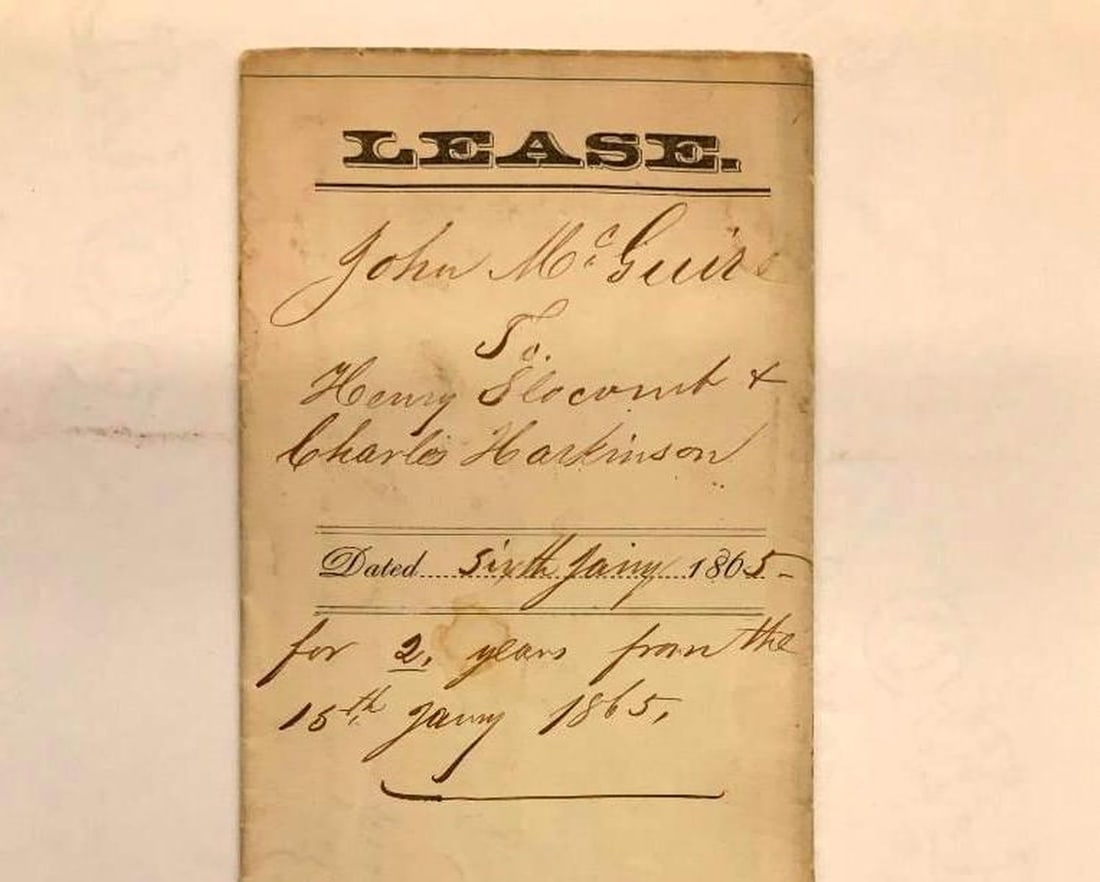 LEASE.
John McGuire
To.
Henry Slocomb &
Charles Harkinson
Dated....sixth Jany...1865-
for 2, years from the
15th Jany 1865,